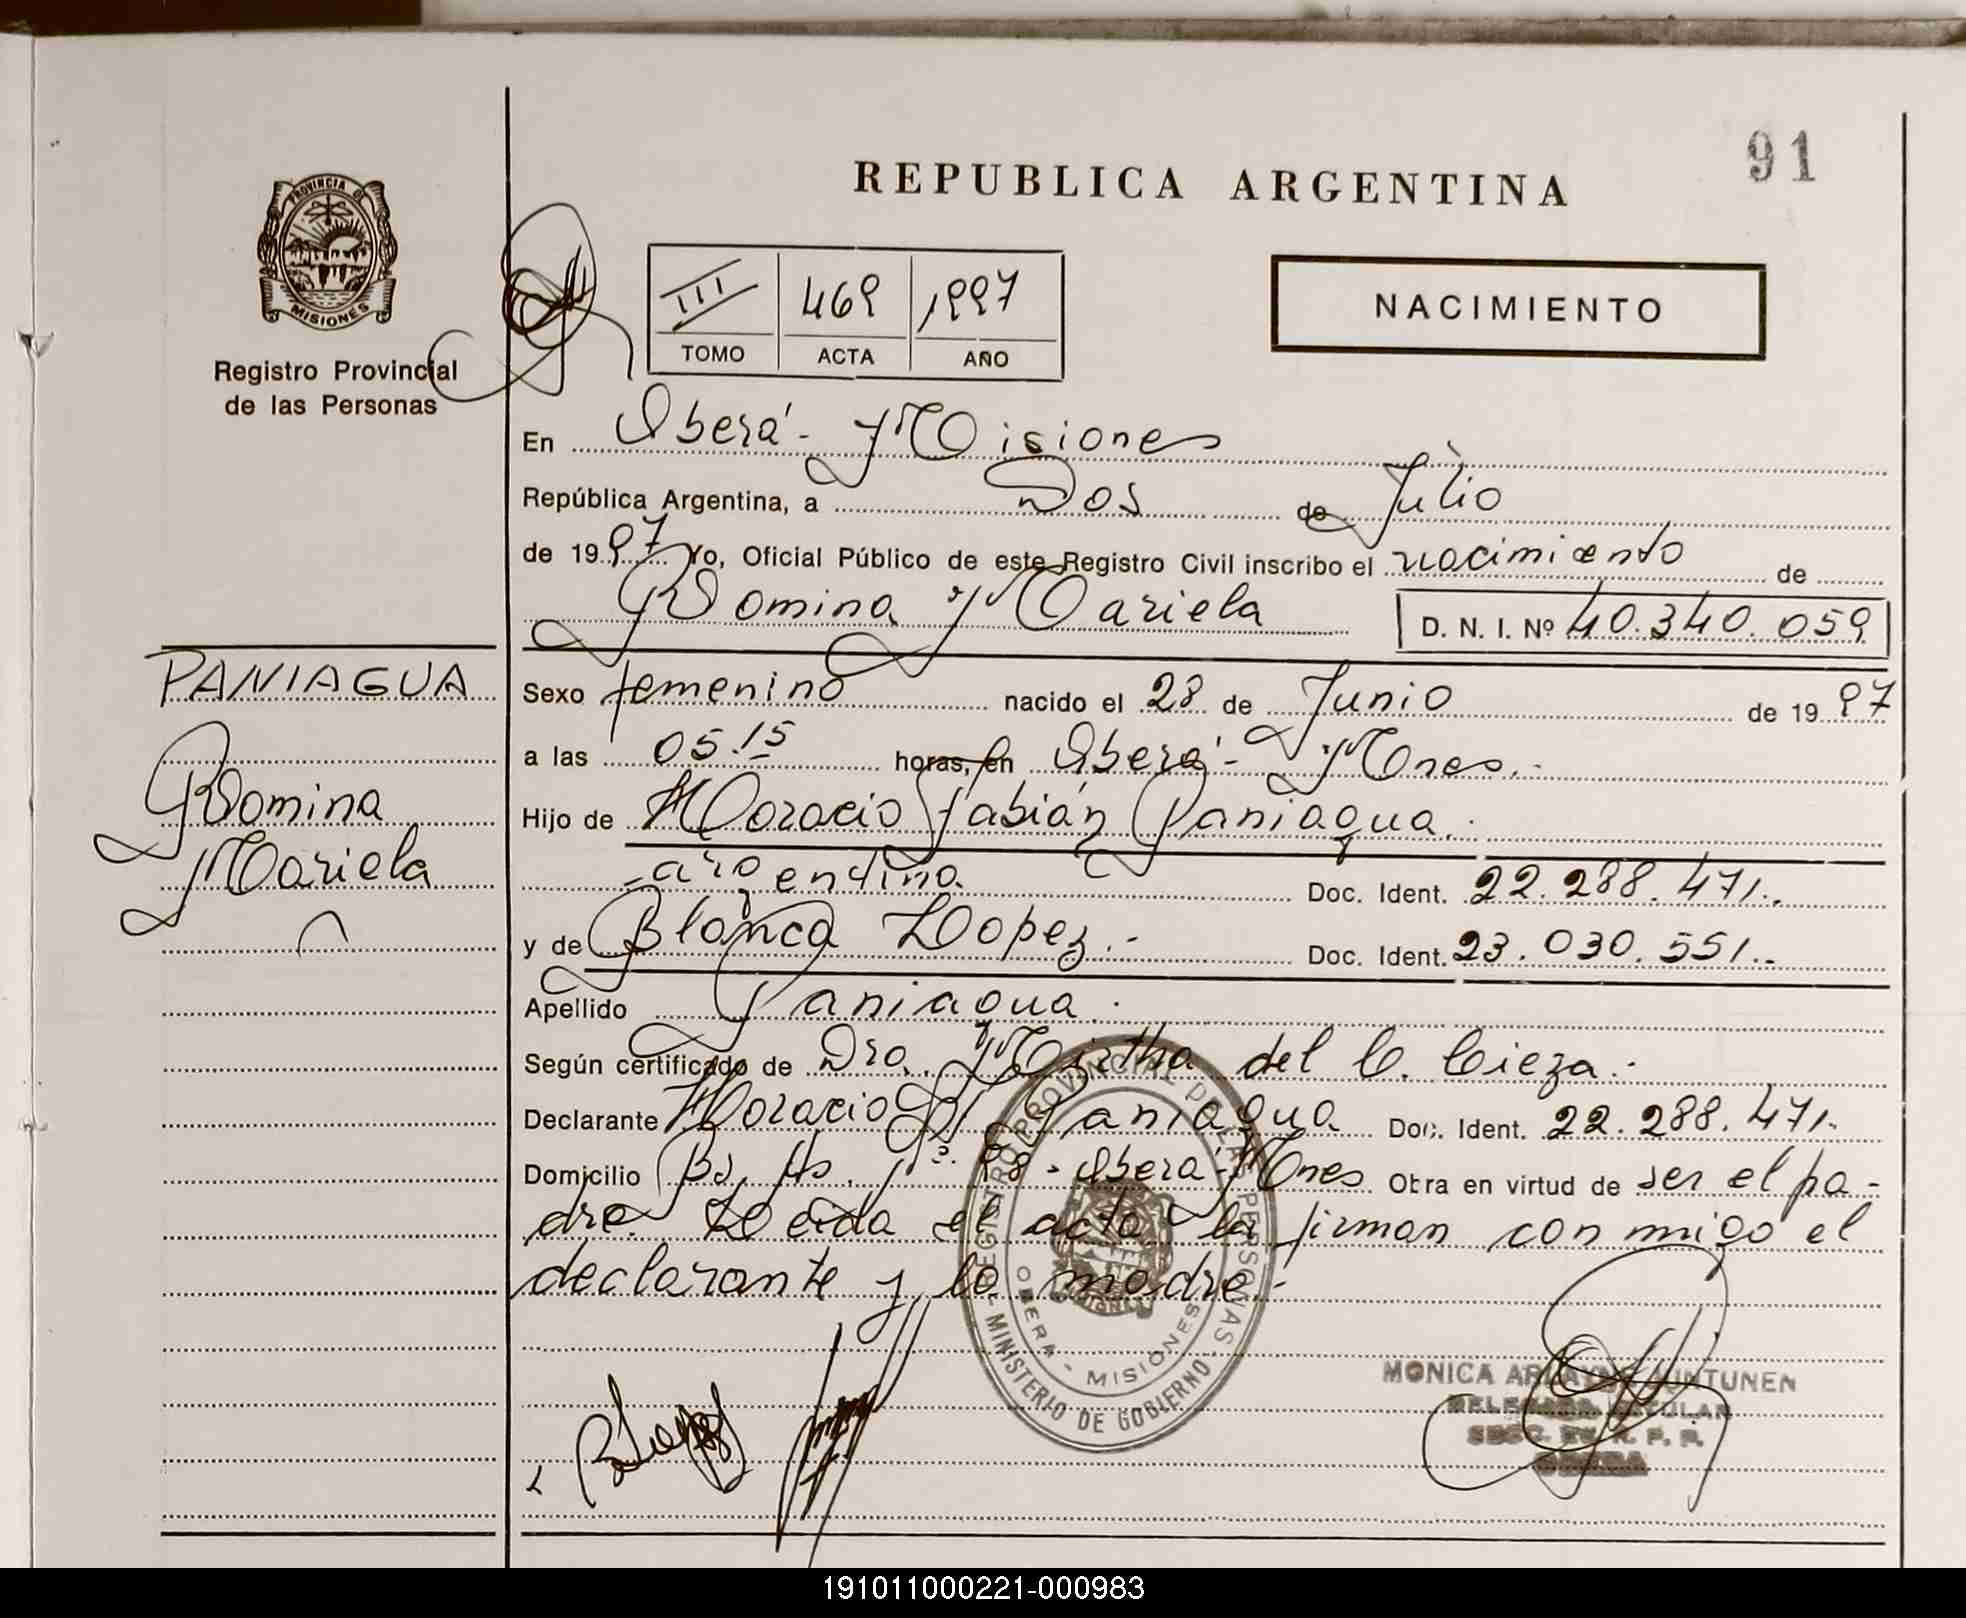 91
REPUBLICA ARGENTINA
PROVINCIA DE
MISIONES
Registro Provincial
de las Personas
III 469 1997
TOMO ACTA AÑO
NACIMIENTO
En Oberá - Misiones
República Argentina, a Dos de Julio
de 1997 Yo, Oficial Público de este Registro Civil inscribo el nacimiento de
Romina Mariela D. N. I. Nº 40.340.059
PANIAGUA
Romina
Mariela
Sexo femenino nacido el 28 de Junio de 1997
a las 05.15 horas, en Oberá - Mnes.-
Hijo de Horacio Fabián Paniagua.
- argentino. Doc. Ident. 22.288.471.-
y de Blanca Lopez.- Doc. Ident. 23.030.551.-
Apellido Paniagua.
Según certificado de Dra. Mirtha del C. Cieza.-
Declarante Horacio F. Paniagua Doc. Ident. 22.288.471.
Domicilio Bs. As. Oberá - Mnes Obra en virtud de ser el pa-
dre. Leída el acta la firman conmigo el
declarante y la madre.-
REGISTRO PROVINCIAL DE LAS PERSONAS
OBERA - MISIONES
MINISTERIO DE GOBIERNO
BLopez
MONICA AUNTUNEN
DELEGADA TITULAR
SECC. R. P. P.
OBERA
191011000221-000983